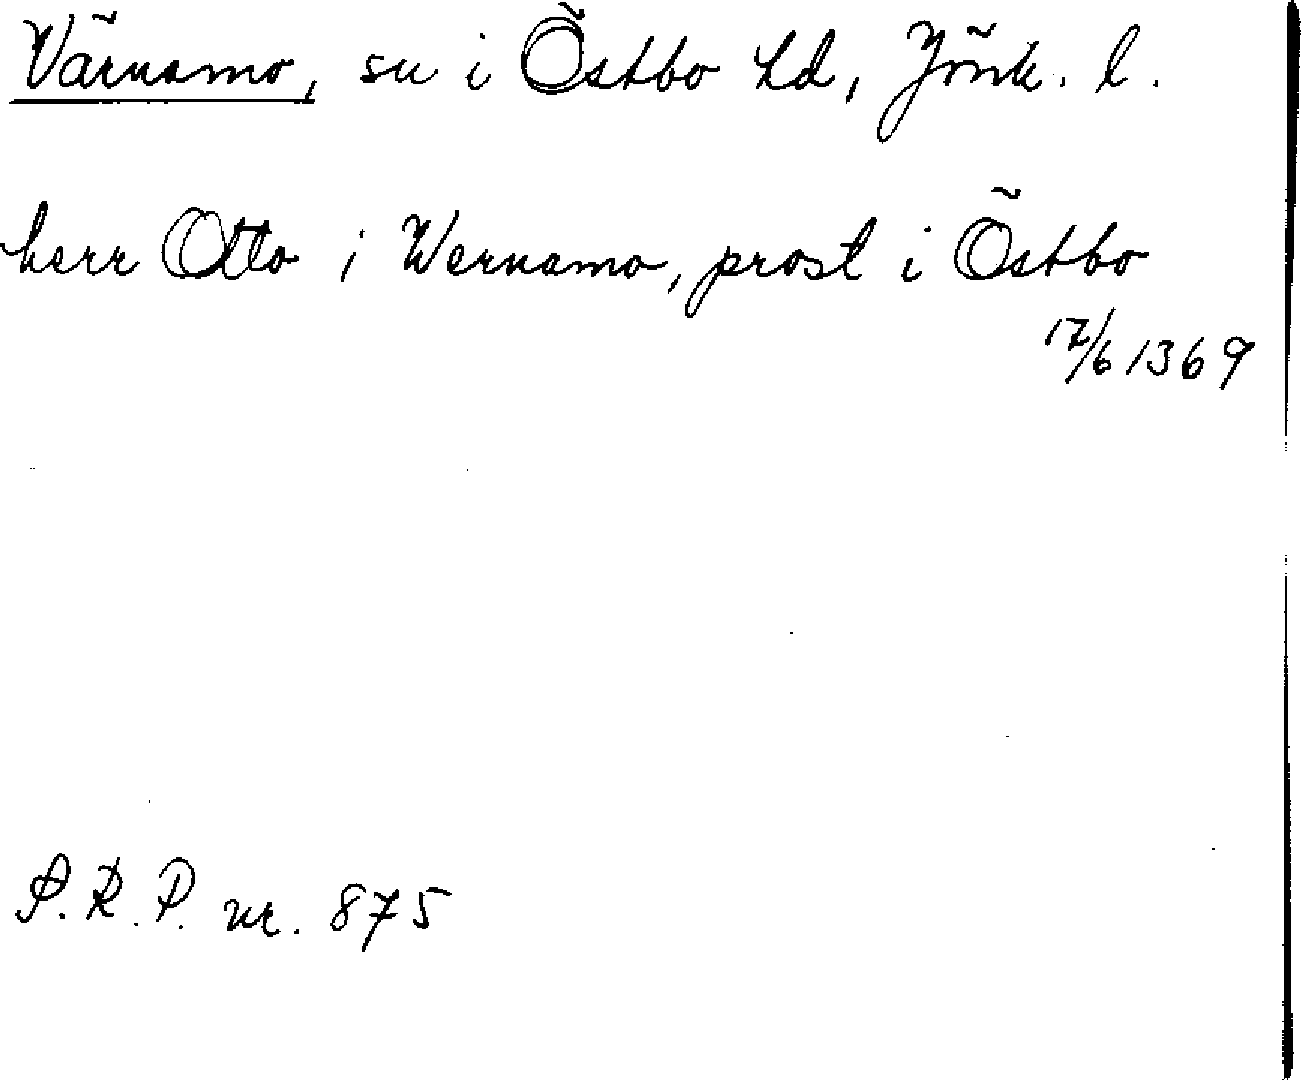 Värnamo, sn i Östbo hd, Jönk. l.
herr Otto i Wernamo, prost i Östbo
17/6 1369
P.R.P. nr. 875